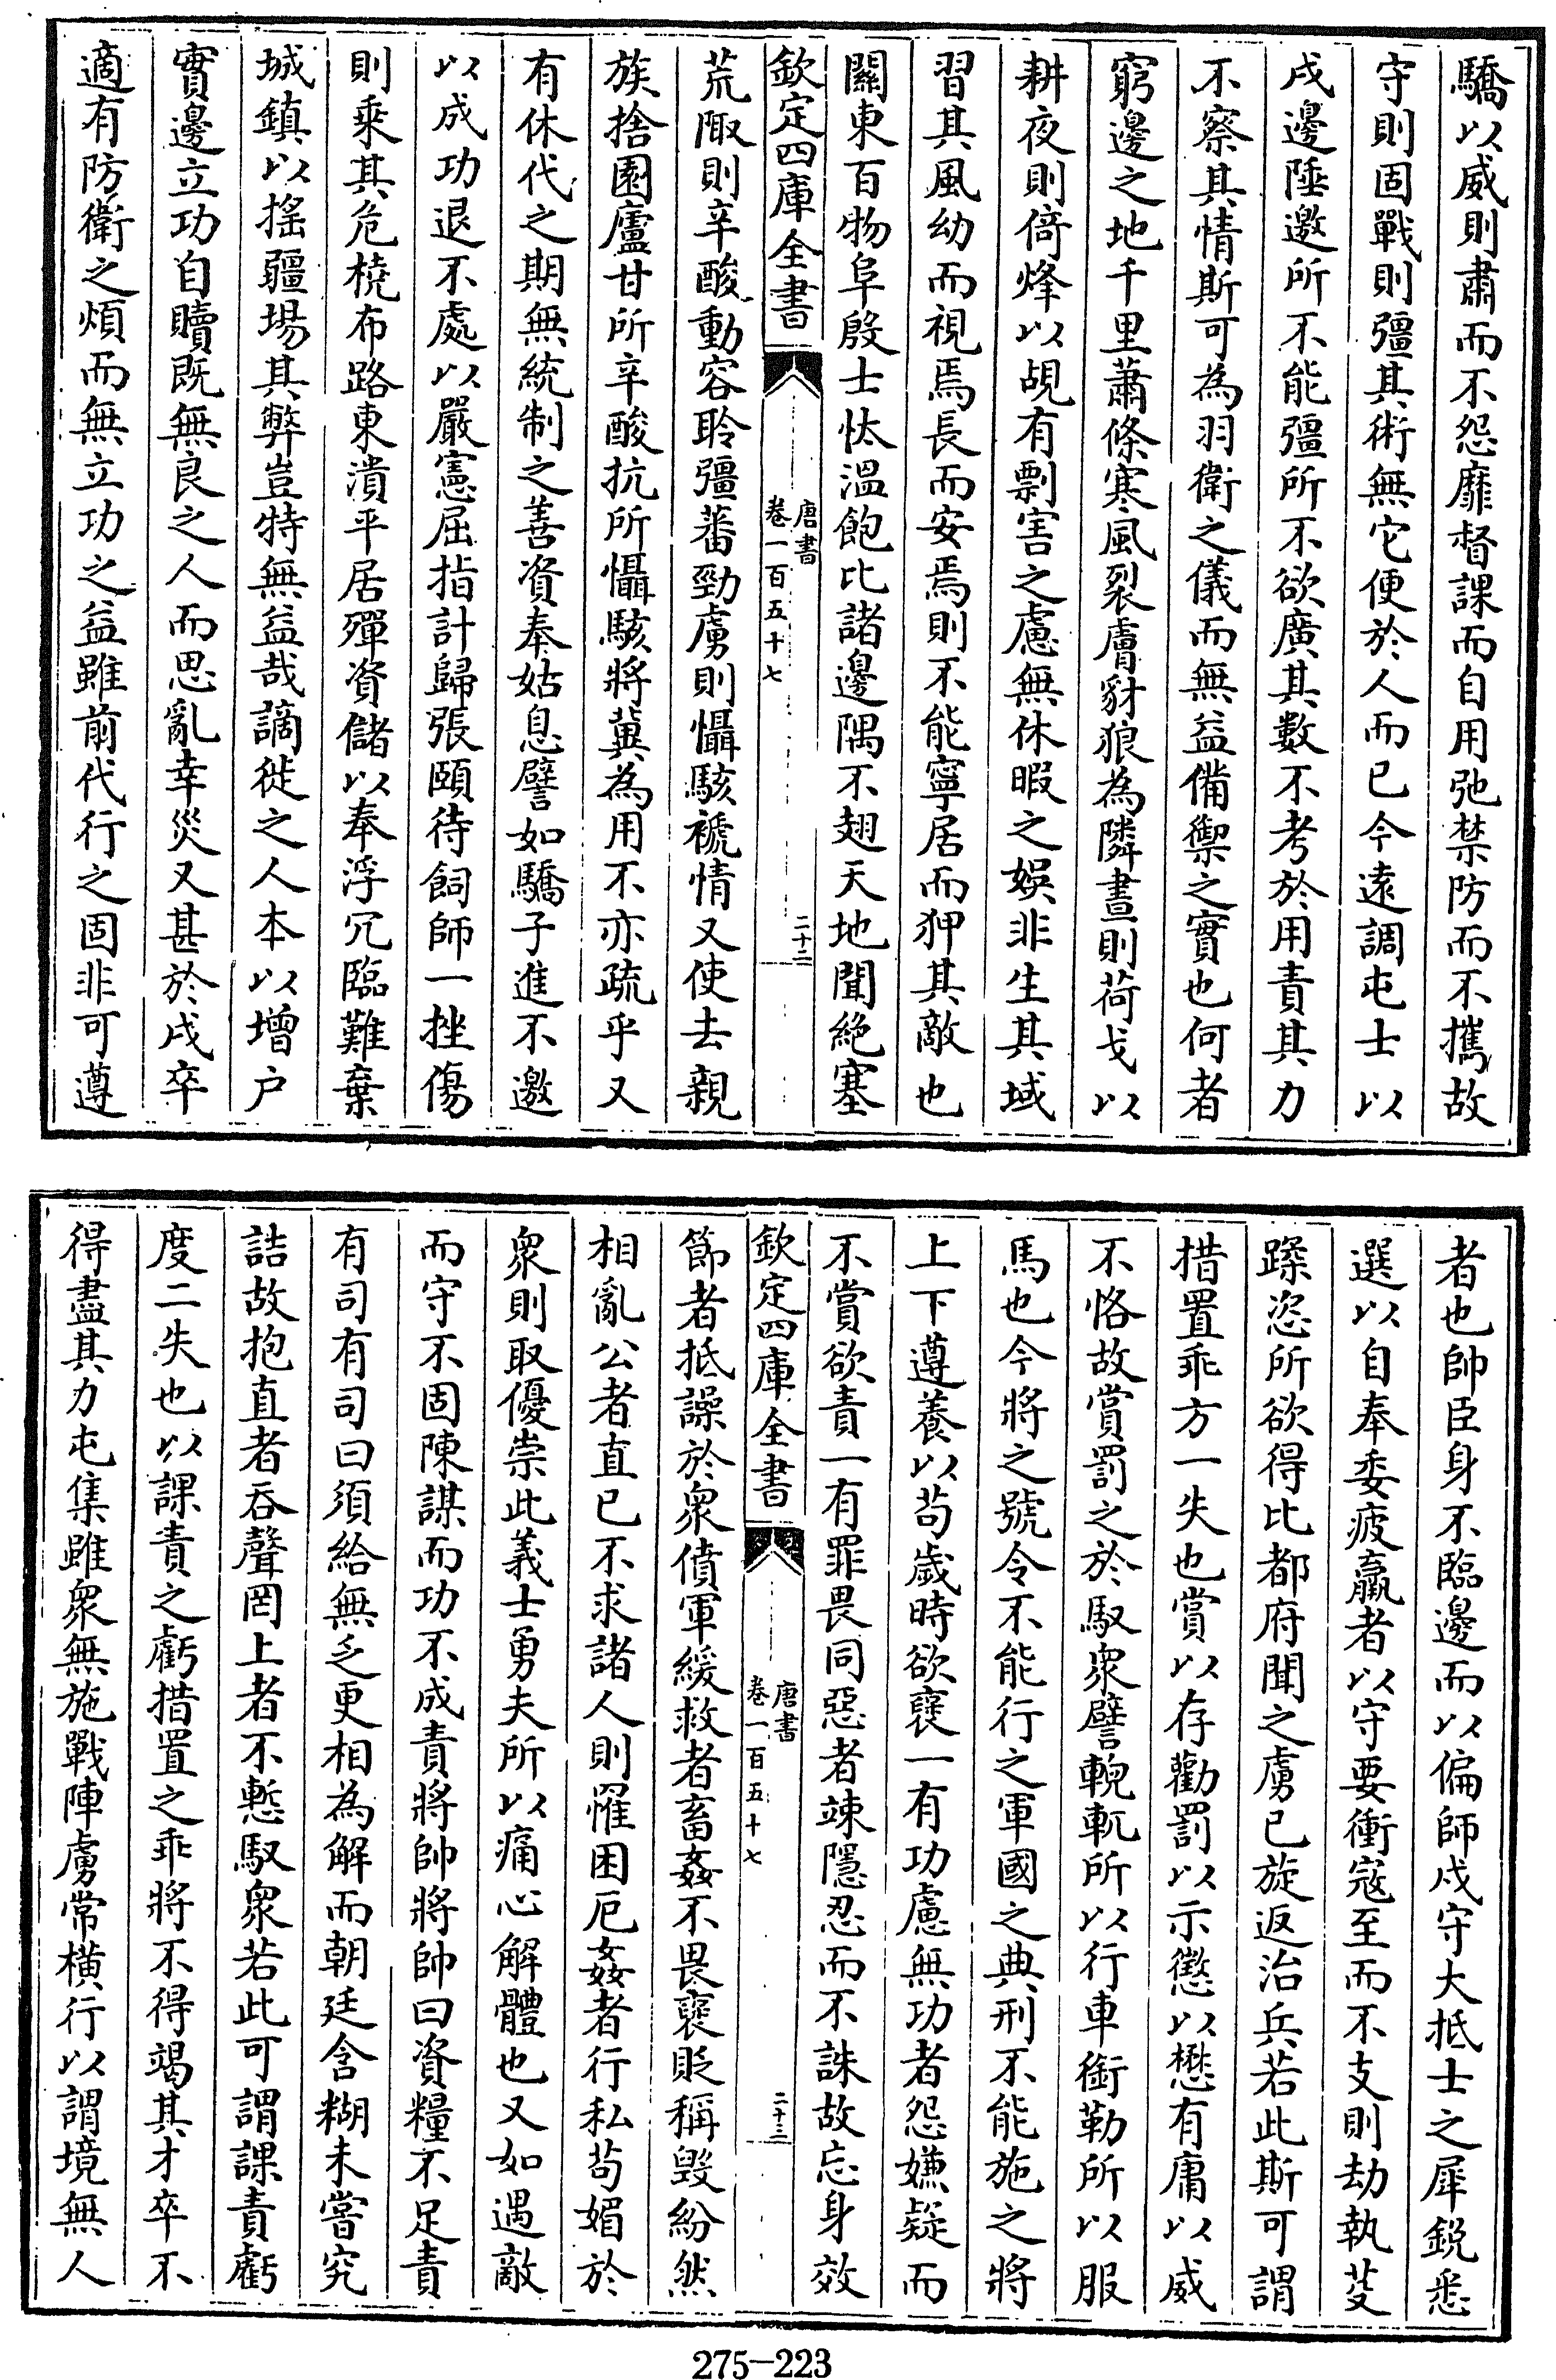 驕以威則肅而不怨靡督課而自用弛禁防而不攜故
守則固戰則彊其術無它便於人而已今遠調屯士以
戍邊陲邀所不能彊所不欲廣其數不考於用責其力
不察其情斯可為羽衛之儀而無益備禦之實也何者
窮邊之地千里蕭條寒風裂膚豺狼為隣晝則荷戈以
耕夜則倚烽以覘有剽害之慮無休暇之娛非生其域
習其風幼而視焉長而安焉則不能寧居而狎其敵也
關東百物阜殷士忕溫飽比諸邊隅不翅天地聞絶塞
欽定四庫全書
唐書
卷一百五十七
二十二
荒陬則辛酸動容聆彊蕃勁虜則懾駭褫情又使去親
族捨園廬甘所辛酸抗所懾駭將冀為用不亦疏乎又
有休代之期無統制之善資奉姑息譬如驕子進不邀
以成功退不處以嚴憲屈指計歸張頤待飼師一挫傷
則乘其危橈布路東潰平居殫資儲以奉浮冗臨難棄
城鎮以搖疆場其弊豈特無益哉謫徙之人本以增户
實邊立功自贖既無良之人而思亂幸災又甚於戍卒
適有防衛之煩而無立功之益雖前代行之固非可遵
者也帥臣身不臨邊而以偏師戍守大抵士之犀鋭悉
選以自奉委疲羸者以守要衝寇至而不支則劫執芟
蹂恣所欲得比都府聞之虜已旋返治兵若此斯可謂
措置乖方一失也賞以存勸罰以示懲以懋有庸以威
不恪故賞罰之於馭衆譬輗軏所以行車銜勒所以服
馬也今將之號令不能行之軍國之典刑不能施之將
上下遵養以苟歲時欲襃一有功慮無功者怨嫌疑而
不賞欲責一有罪畏同惡者竦隱忍而不誅故忘身效
欽定四庫全書
唐書
卷一百五十七
二十三
節者抵譟於衆僨軍緩救者畜姦不畏襃貶稱毁紛然
相亂公者直已不求諸人則罹困厄姦者行私苟媚於
衆則取優崇此義士勇夫所以痛心解體也又如遇敵
而守不固陳謀而功不成責將帥將帥曰資糧不足責
有司有司曰須給無乏更相為解而朝廷含糊未嘗究
詰故抱直者吞聲罔上者不慙馭衆若此可謂課責虧
度二失也以課責之虧措置之乖將不得竭其才卒不
得盡其力屯集雖衆無施戰陣虜常横行以謂境無人
275-223